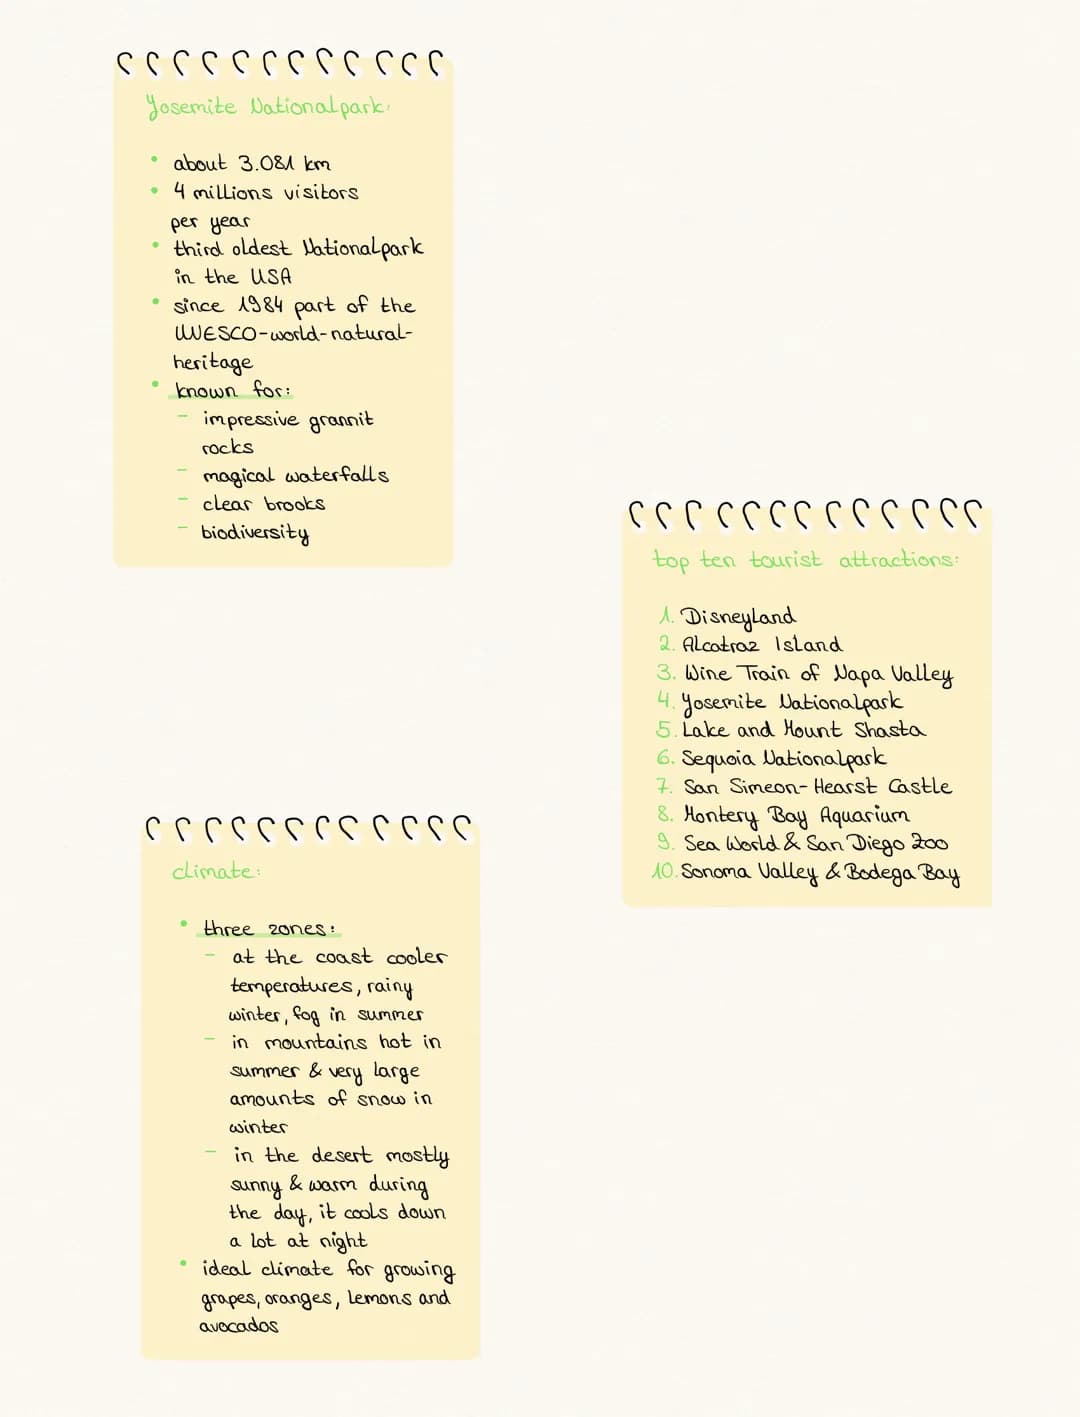 Yosemite Nationalpark:
• about 3.081 km
• 4 millions visitors
per year
• third oldest Nationalpark
in the USA
• since 1984 part of the
UNESCO-world-natural-
heritage
• known for:
- impressive grannit
rocks
- magical waterfalls
- clear brooks
- biodiversity
top ten tourist attractions:
1. Disneyland
2. Alcatraz Island
3. Wine Train of Napa Valley
4. Yosemite Nationalpark
5. Lake and Mount Shasta
6. Sequoia Nationalpark
7. San Simeon-Hearst Castle
8. Montery Bay Aquarium
9. Sea World & San Diego Zoo
10. Sonoma Valley & Bodega Bay
climate:
• three zones:
- at the coast cooler
temperatures, rainy
winter, fog in summer
- in mountains hot in
summer & very large
amounts of snow in
winter
- in the desert mostly
sunny & warm during
the day, it cools down
a lot at night
• ideal climate for growing
grapes, oranges, lemons and
avocados